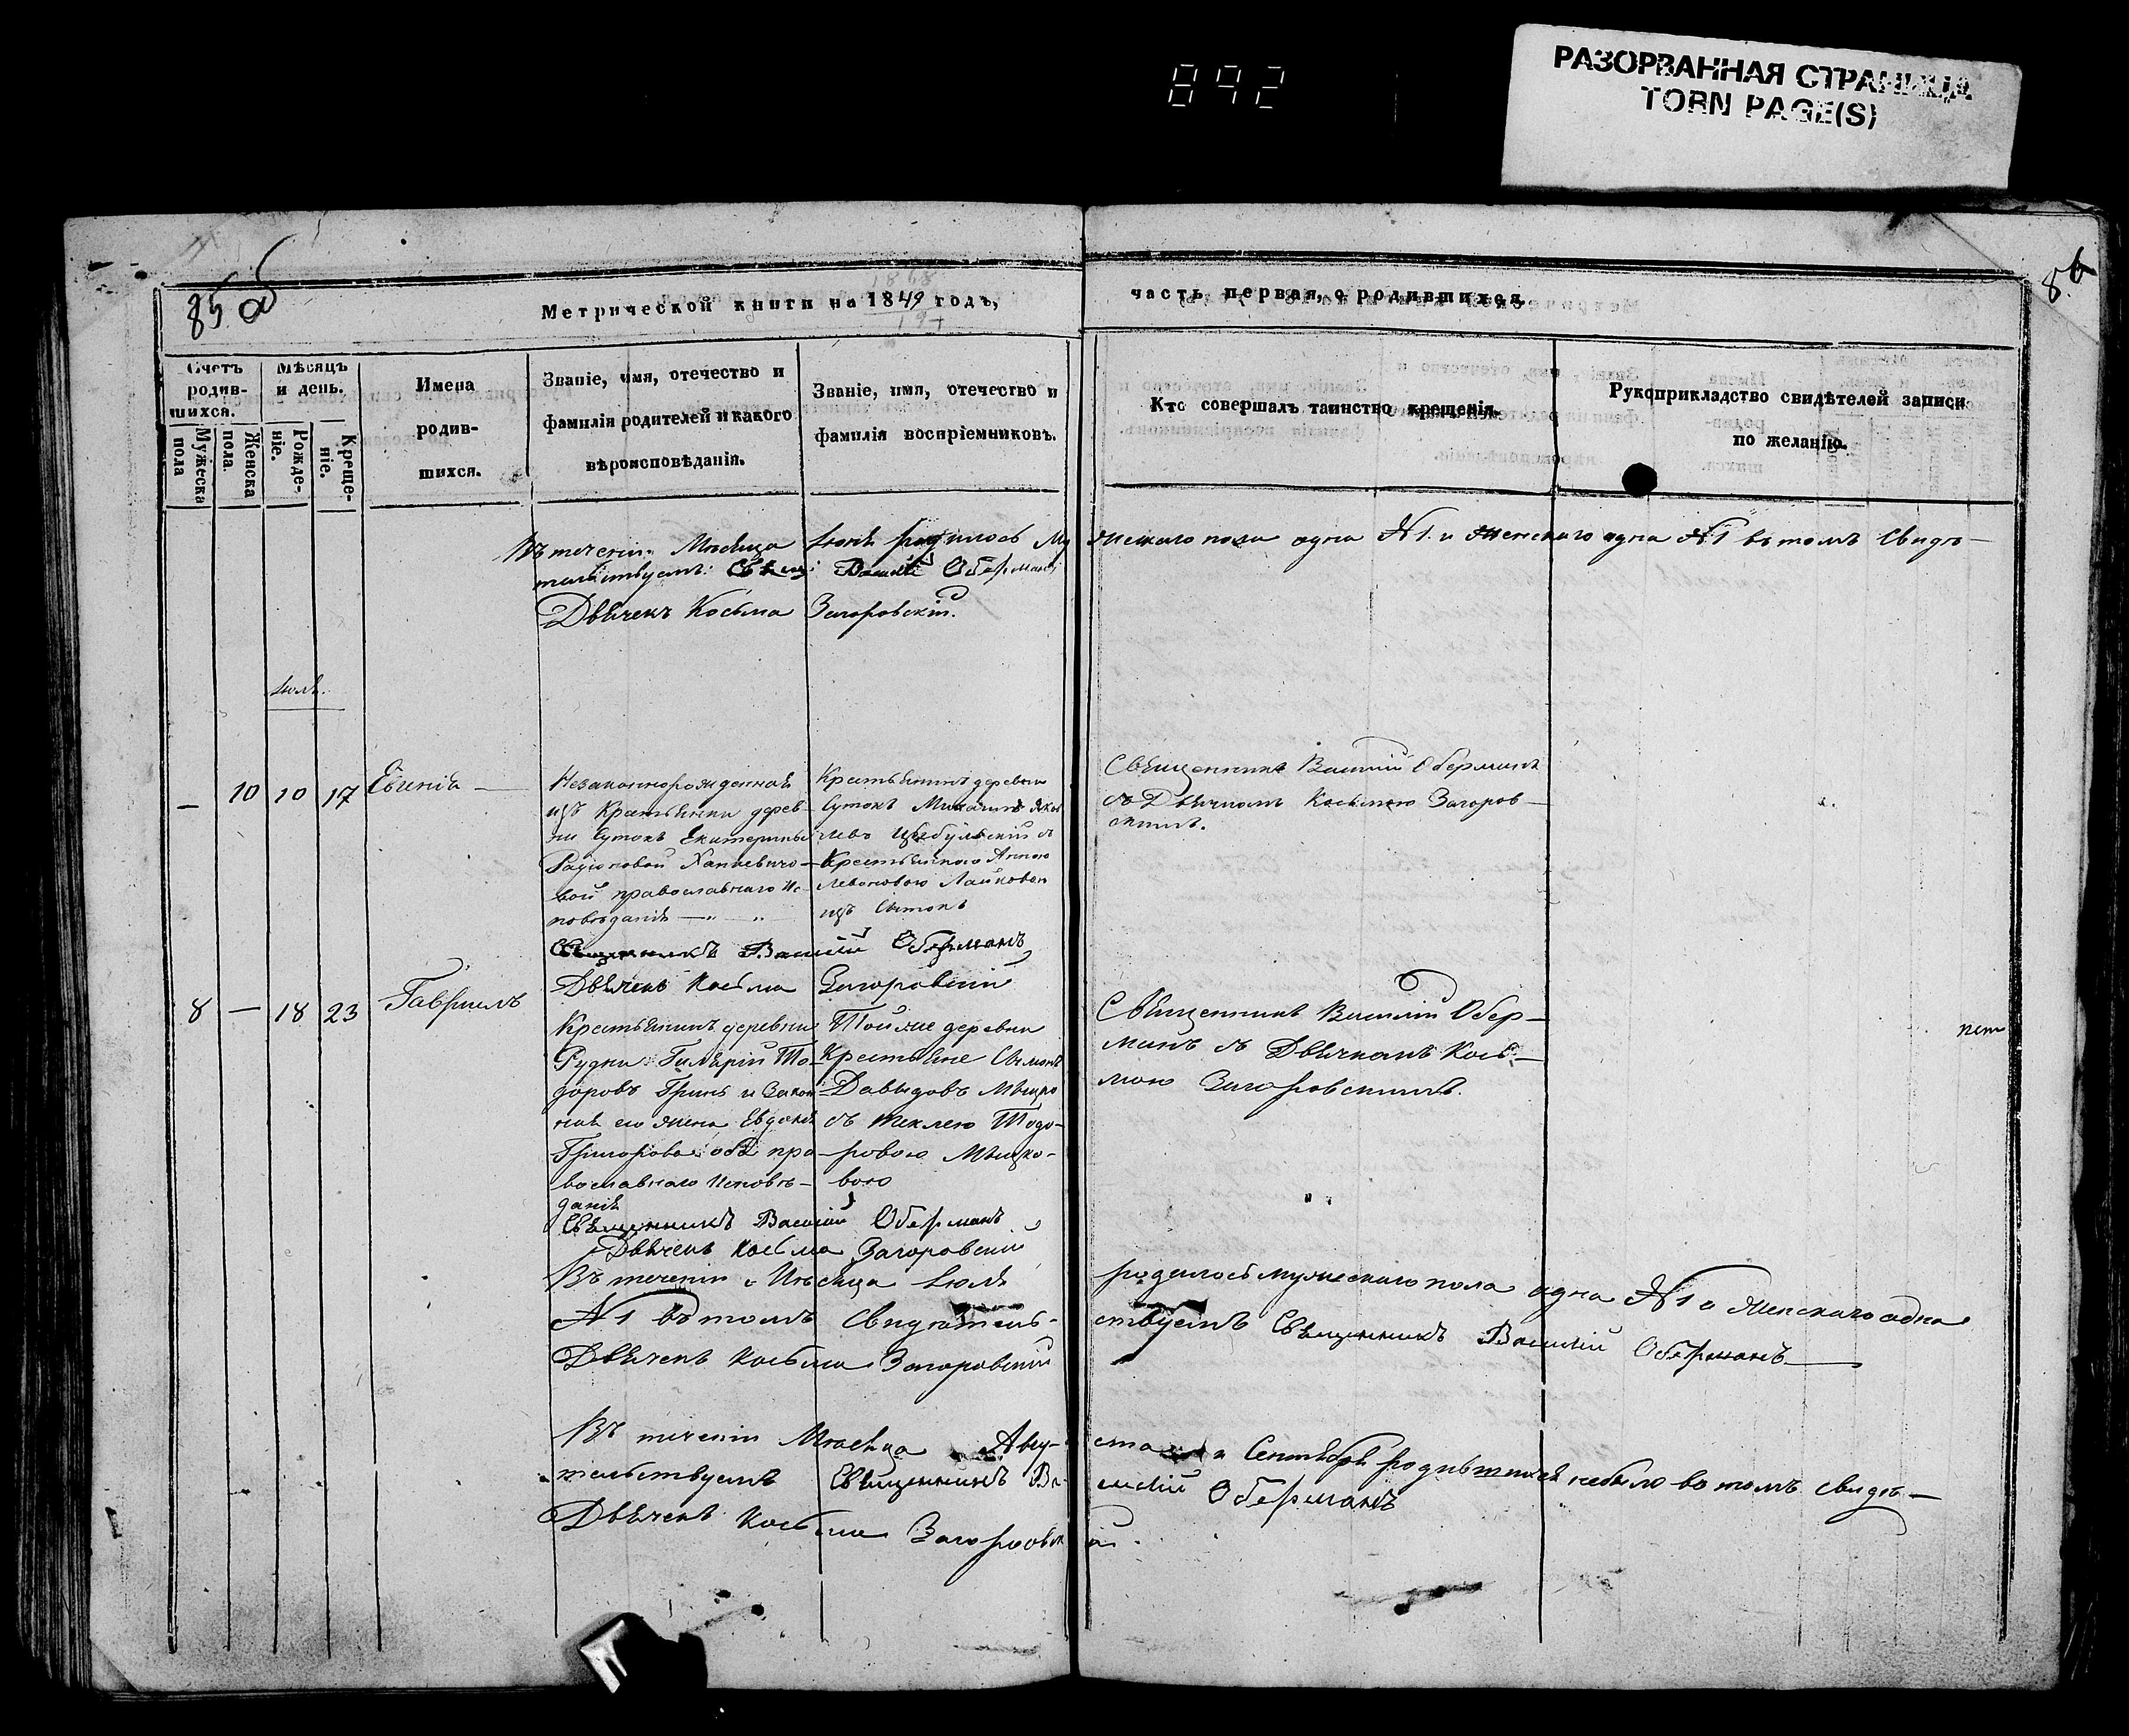 892
РАЗОРВАННАЯ СТРАНИЦА
TORN PAGE(S)
85 об
86
Метрической книги на 1849 годъ,
часть первая, о родившихся.
Счетъ родив-шихся.
Мужеска пола
Женска пола.
Мѣсяцъ и день.
Рожде-ніе.
Креще-ніе.
Имена
родив-
шихся.
Званіе, имя, отечество и
фамилія родителей и какого
вѣроисповѣданія.
Званіе, имя, отечество и
фамилія воспріемниковъ.
Кто совершалъ таинство крещенія.
Рукоприкладство свидѣтелей записи
по желанію.
Въ теченіи Мѣсяца Іюня родилось Му жескаго пола одна №1 и Женскаго одна №1 въ томъ Свидѣ-
тельствуемъ: Свящ: Василій Оберманъ
Дьячекъ Косьма Загоровскій.
Іюль.
— 10 10 17 Евгенія —
Незаконнорожденная
изъ Крестьянки дерев-
ни Сутокъ Екатерины
Радіоновой
вой православнаго Ис-
повѣданія — " — "
Крестьянинъ деревни
Сутокъ Михаилъ Яков
левъ Цыбульскій съ
Крестьянкою Анною
Левоновою
изъ Сутокъ
Священникъ Василій Оберманъ
съ Дьячкомъ Косьмою Загоров-
скимъ.
Священникъ Василій Оберманъ
Дьячекъ Косьма Загоровскій
8 — 18 23 Гавріилъ
Крестьянинъ деревни
Рудни Гилярій То-
доровъ Гринь и Закон
ная его жена Евдокія
Григорова оба пра-
вославнаго Исповѣ-
данія
Той же деревни
Крестьяне Сымонъ
Давыдовъ
съ Теклею Тодо-
ровою
вою
Священникъ Василій Обер-
манъ съ Дьячкомъ Кось-
мою Загоровскимъ.
Священникъ Василій Оберманъ
Дьячекъ Косьма Загоровскій
Въ теченіи Мѣсяца Іюля родилось мужескаго пола одна №1 и женскаго одна
№1 въ томъ Свидѣтель-ствуемъ Священникъ Василій Оберманъ
Дьячекъ Косьма Загоровскій
Въ теченіи Мѣсяца Авгу-ста и Сентября родившихся небыло въ томъ свидѣ-
тельствуемъ Священникъ Ва-силій Оберманъ
Дьячекъ Косьма Загоровскій.